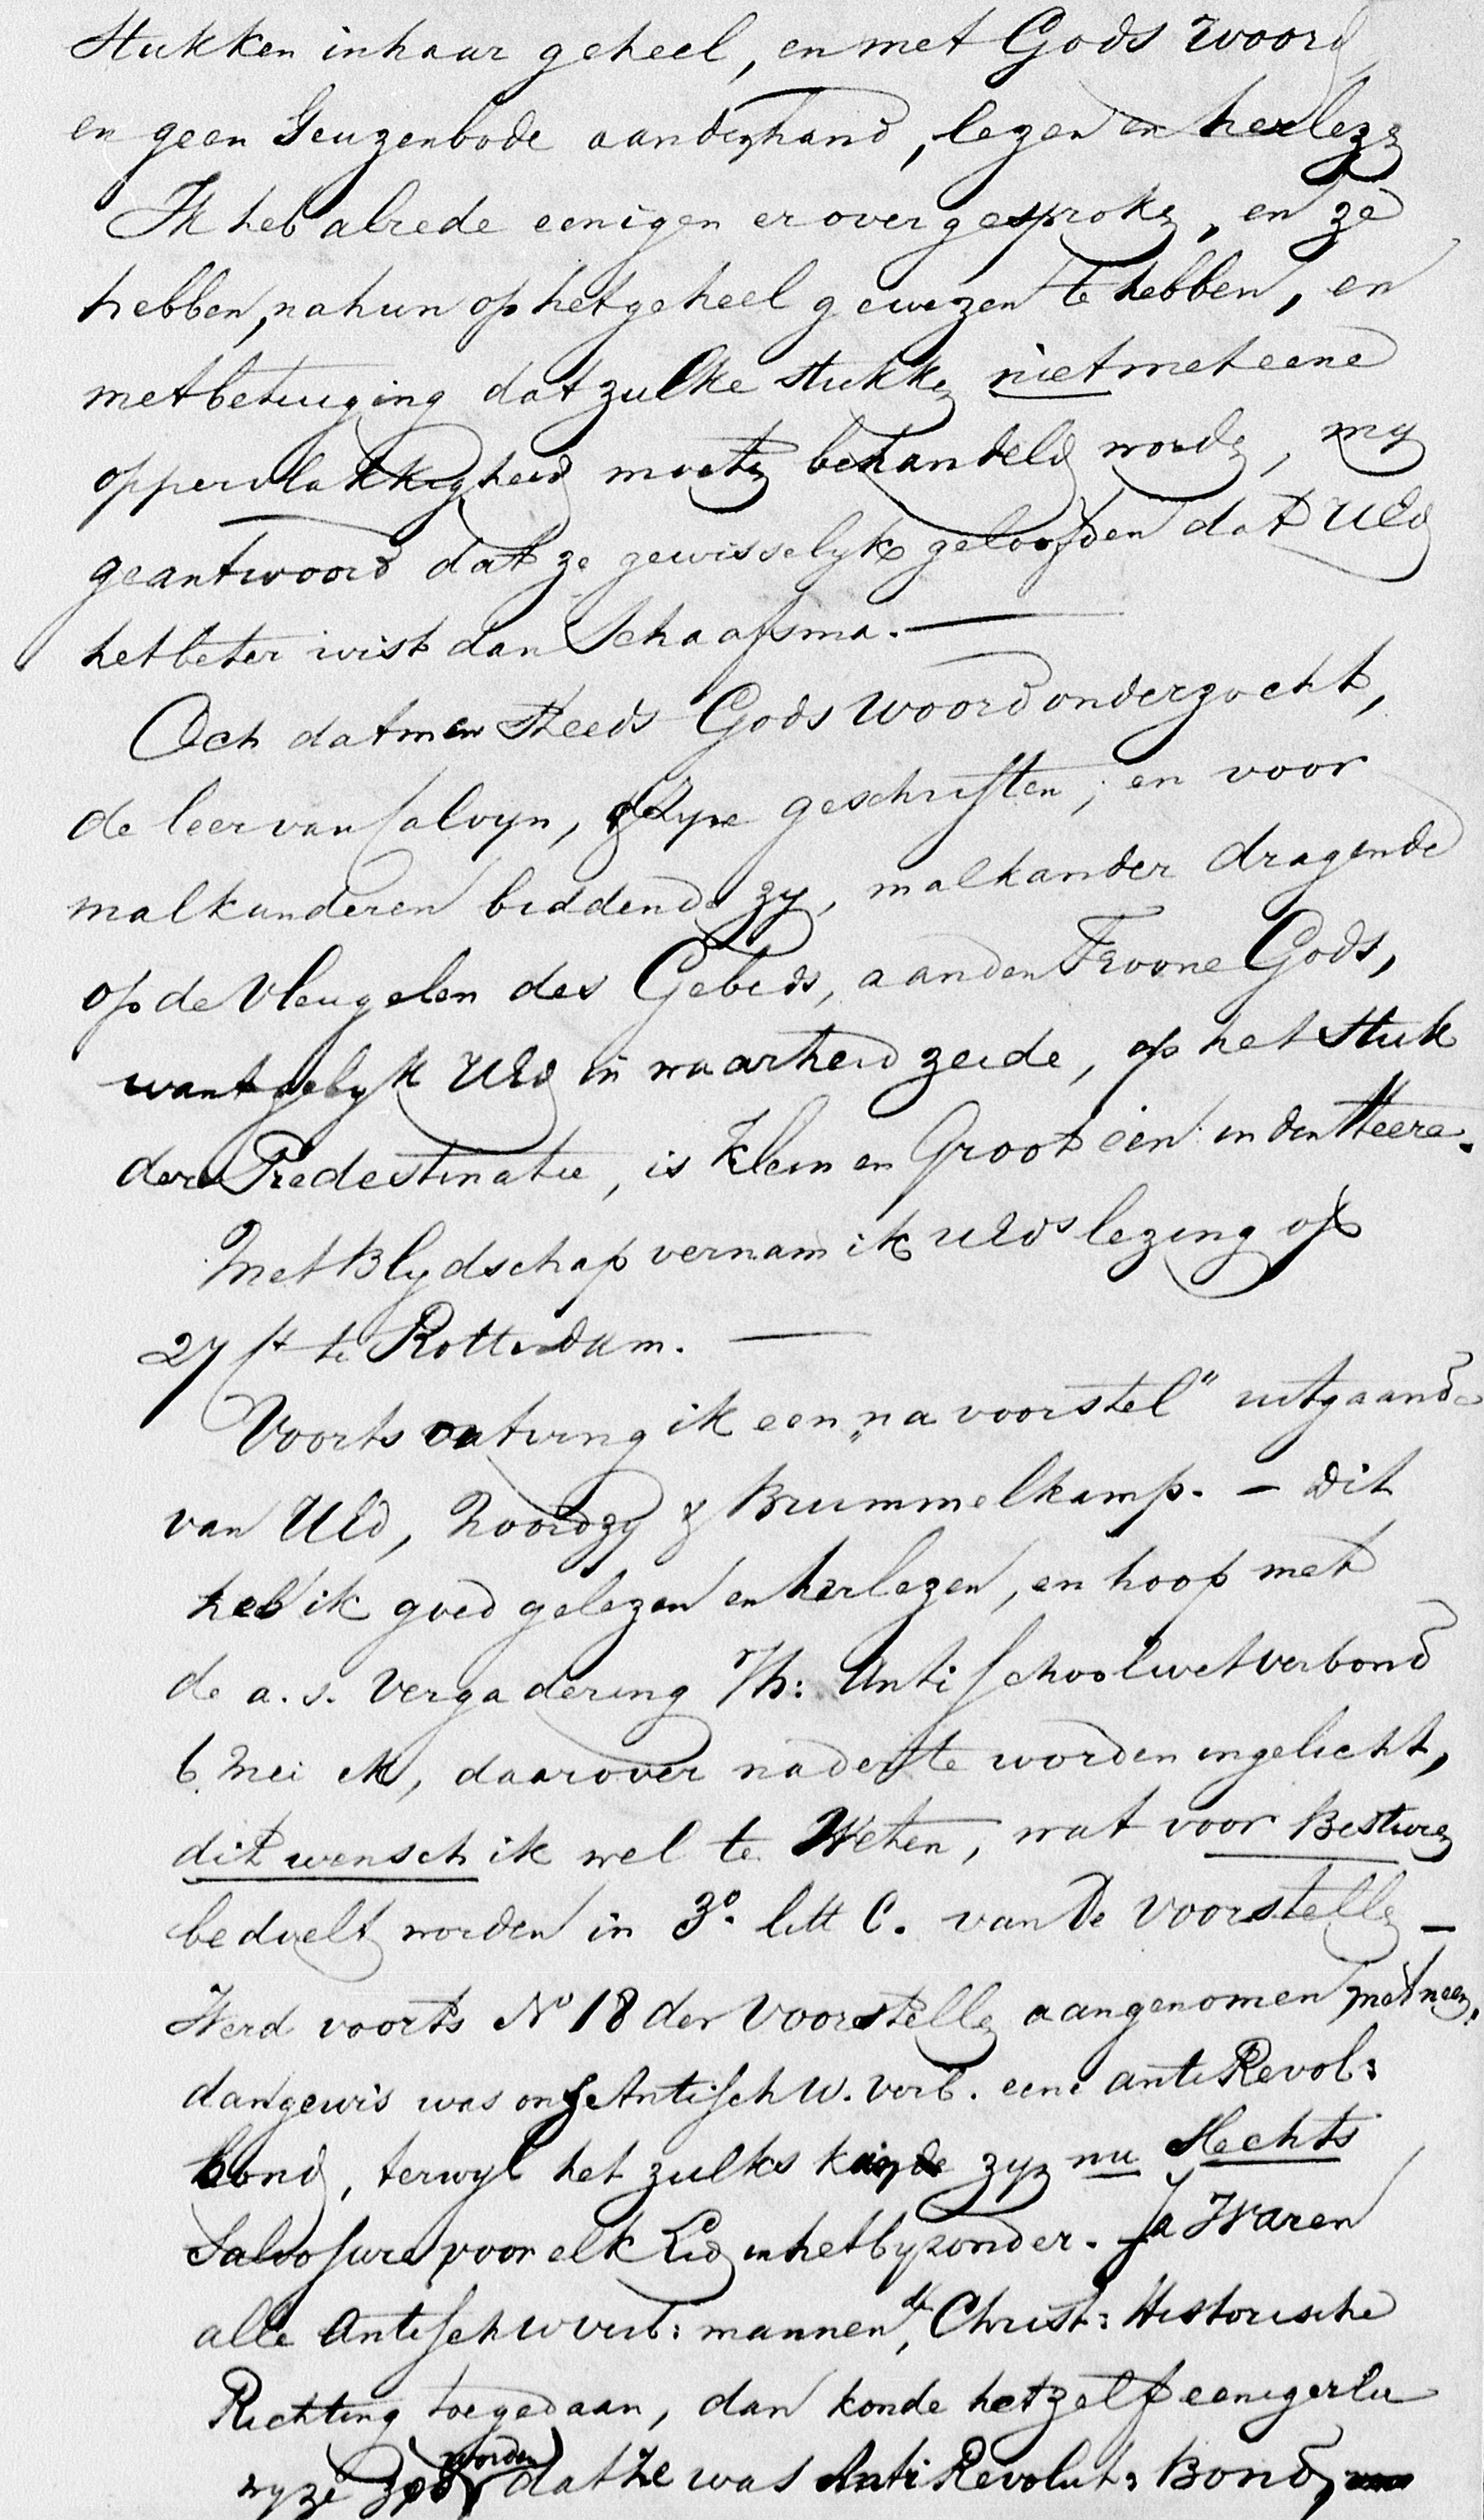 Stukken in haar geheel, en met Gods Woord
en geen Geuzenbode aan de hand, lezen en herlezen
Ik heb alrede eenigen er over gesproken, en ze
hebben, na hun op het geheel gewezen te hebben, en
met betuiging dat zulke stukken niet met eene
oppervlakkigheid moeten behandeld worden, my
geantwoord dat ze gewisselyk geloofden dat UEd
het beter wist dan Schaafsma. —
Och dat men steeds Gods Woord onderzocht,
de leer van Calvyn, & zyne geschriften; en voor
malkanderen biddende zy, malkander dragende
op de vleugelen des Gebeds, aan den Troone Gods,
want gelyk UEd in waarheid zeide, op het Stuk
der Predestinatie, is Klein en Groot één in den Heere.
Met Blydschap vernam ik UEds lezing op
27 st te Rotterdam. —
Voorts ontving ik een „na voorstel" uitgaande
van UEd, Noordzy & Brummelkamp. — Dit
heb ik goed gelezen en herlezen, en hoop met
de a. s. Vergadering Anti Schoolwetverbond
6 Mei ek, daarover nader te worden ingelicht,
dit wensch ik wel te Weten, wat voor Besturen
bedoeld worden in 3º. litt C. van De Voorstellen —
Werd voorts Nº 18 der Voorstellen aangenomen
dan gewis was onze AntiSchW. verb. eene anti Revol:
bond, terwyl het zulks zyn nu Slechts
Salvo Jure voor elk Lid in het byzonder. Ja Waren
alle AntiSchwverb: mannen, de Christ: Historische
Richting toegedaan, dan konde het zelf eenigerlei
wyze worden dat Ze was Anti Revolut: Bond,